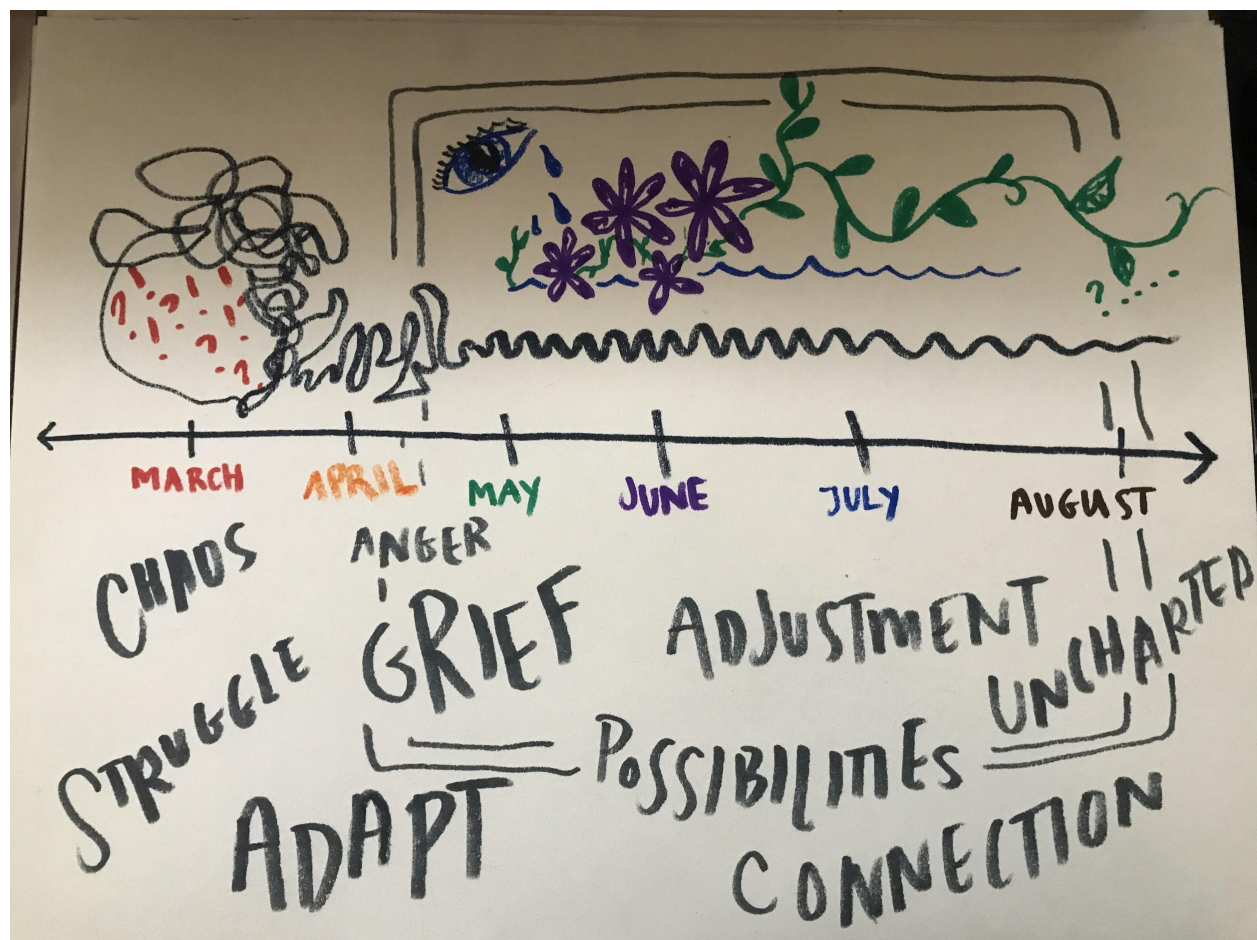 ? ? ? ? ?
?
MARCH APRIL MAY JUNE JULY AUGUST
CHAOS
ANGER
STRUGGLE
GRIEF
ADJUSTMENT
UNCHARTED
POSSIBILITIES
ADAPT
CONNECTION